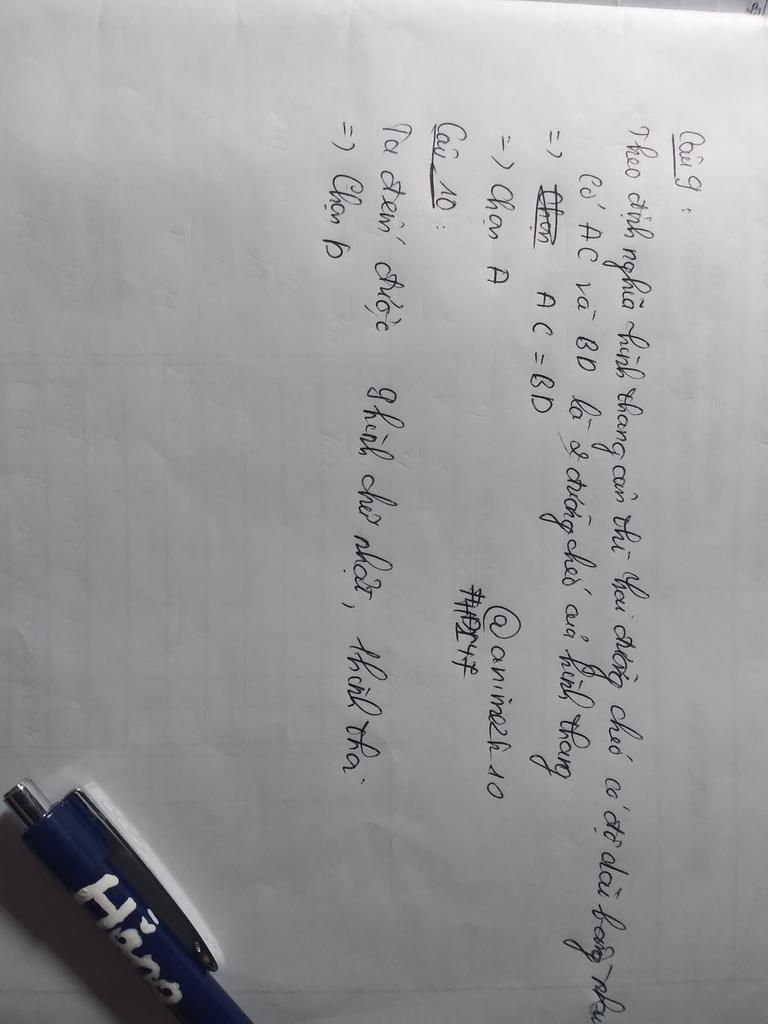 Câu 9:
Theo định nghĩa hình thang cân thì hai đường chéo có độ dài bằng nhau
Có AC và BD là 2 đường chéo của hình thang
=> Chọn AC = BD
=> Chọn A
@animezh10
Câu 10:
Ta đếm được 9 hình chữ nhật, 1 hình thoi
=> Chọn D
Hằng